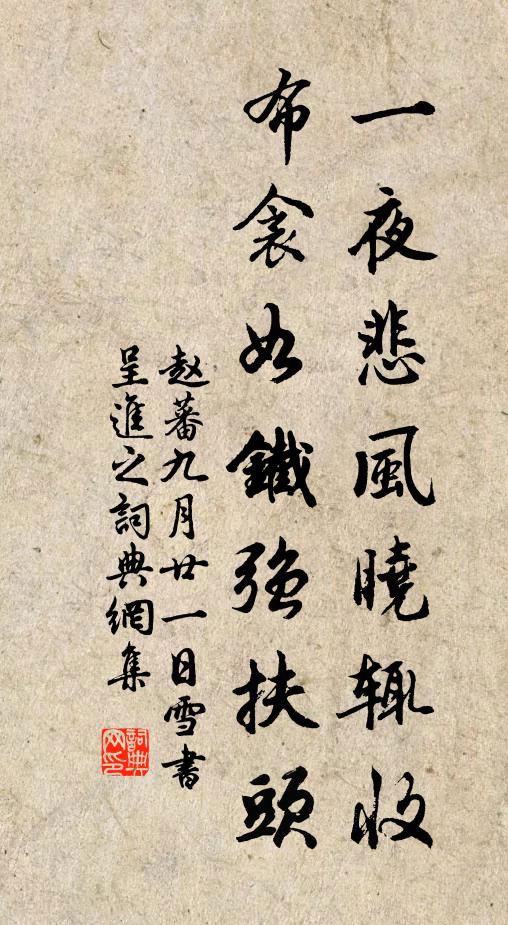 一夜悲風曉輒收
布衾如鐵強扶頭
赵蕃九月廿一日雪書
呈進之詞典網集
詞典網印